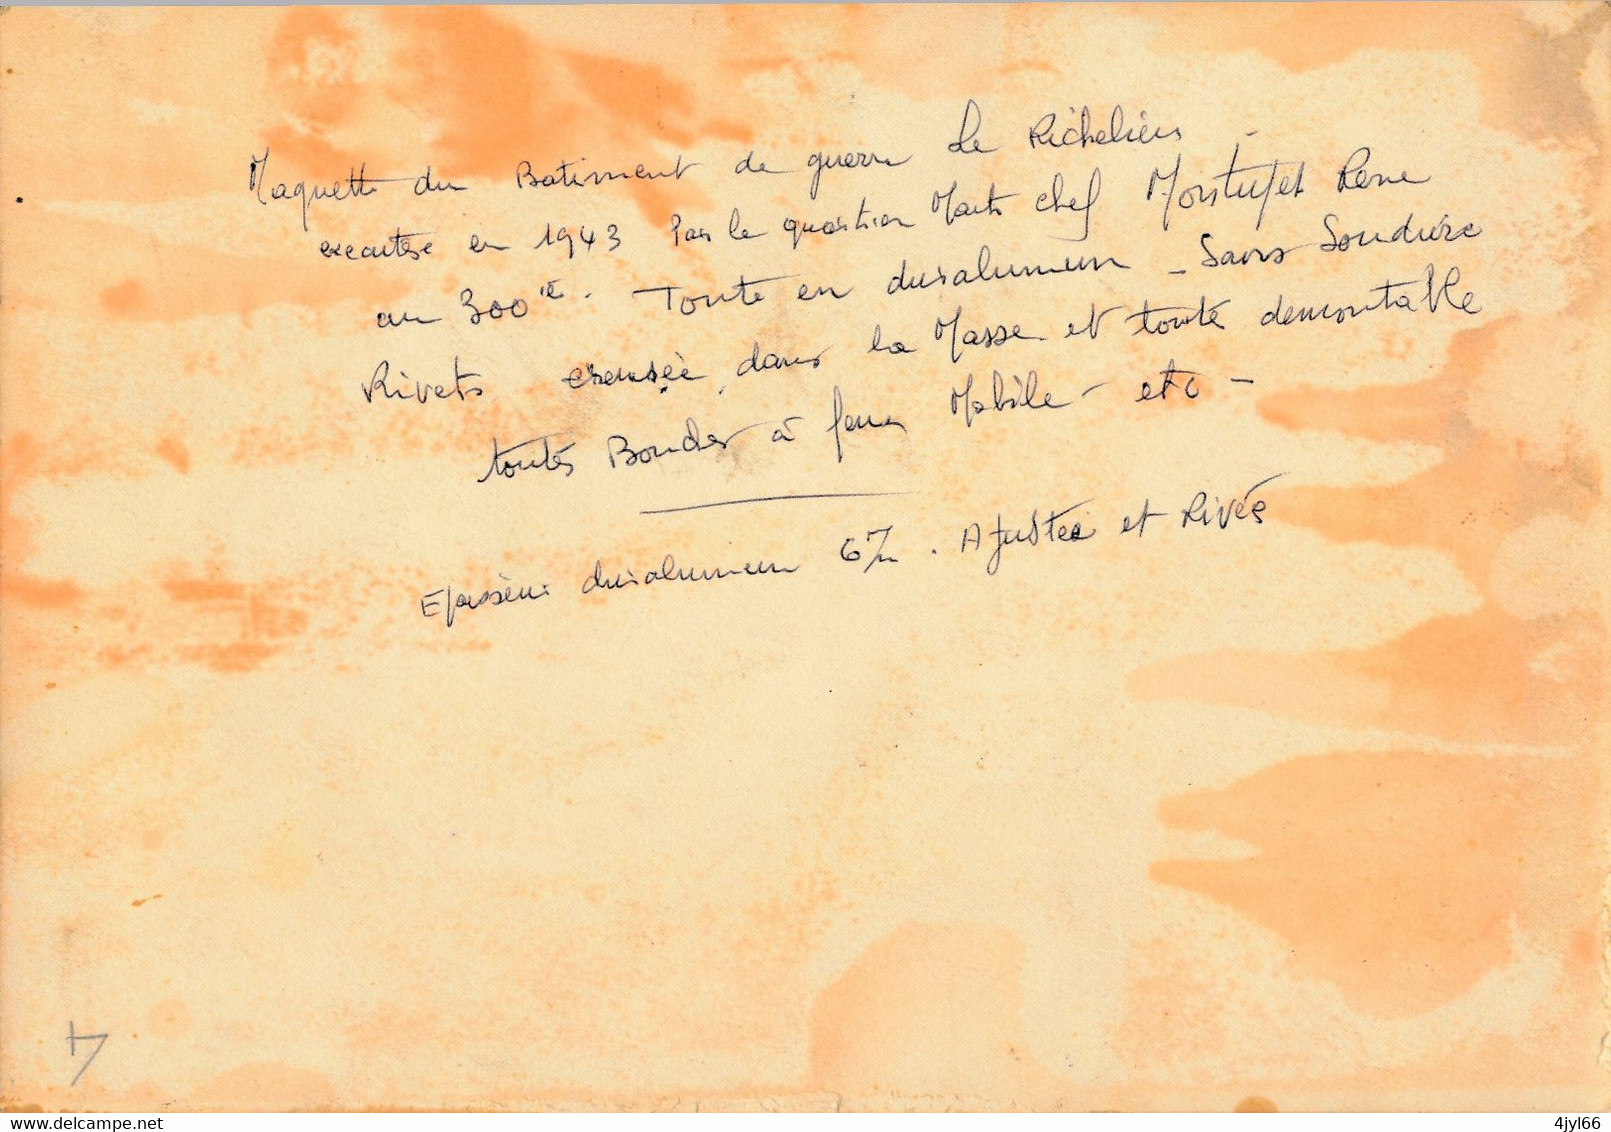 Maquette du Batiment de guerre Le Richelieu -
executée en 1943 Par le quartier Maitre chef René
au 300ie. Toute en duralumin - Sans Soudure
Rivets creusée dans la Masse et toute demontable
toutes Bouches à feux Mobile - etc -
Epaisseur duralumin 6/m. Ajustée et Rivée
4
delcampe.net
4jyl66